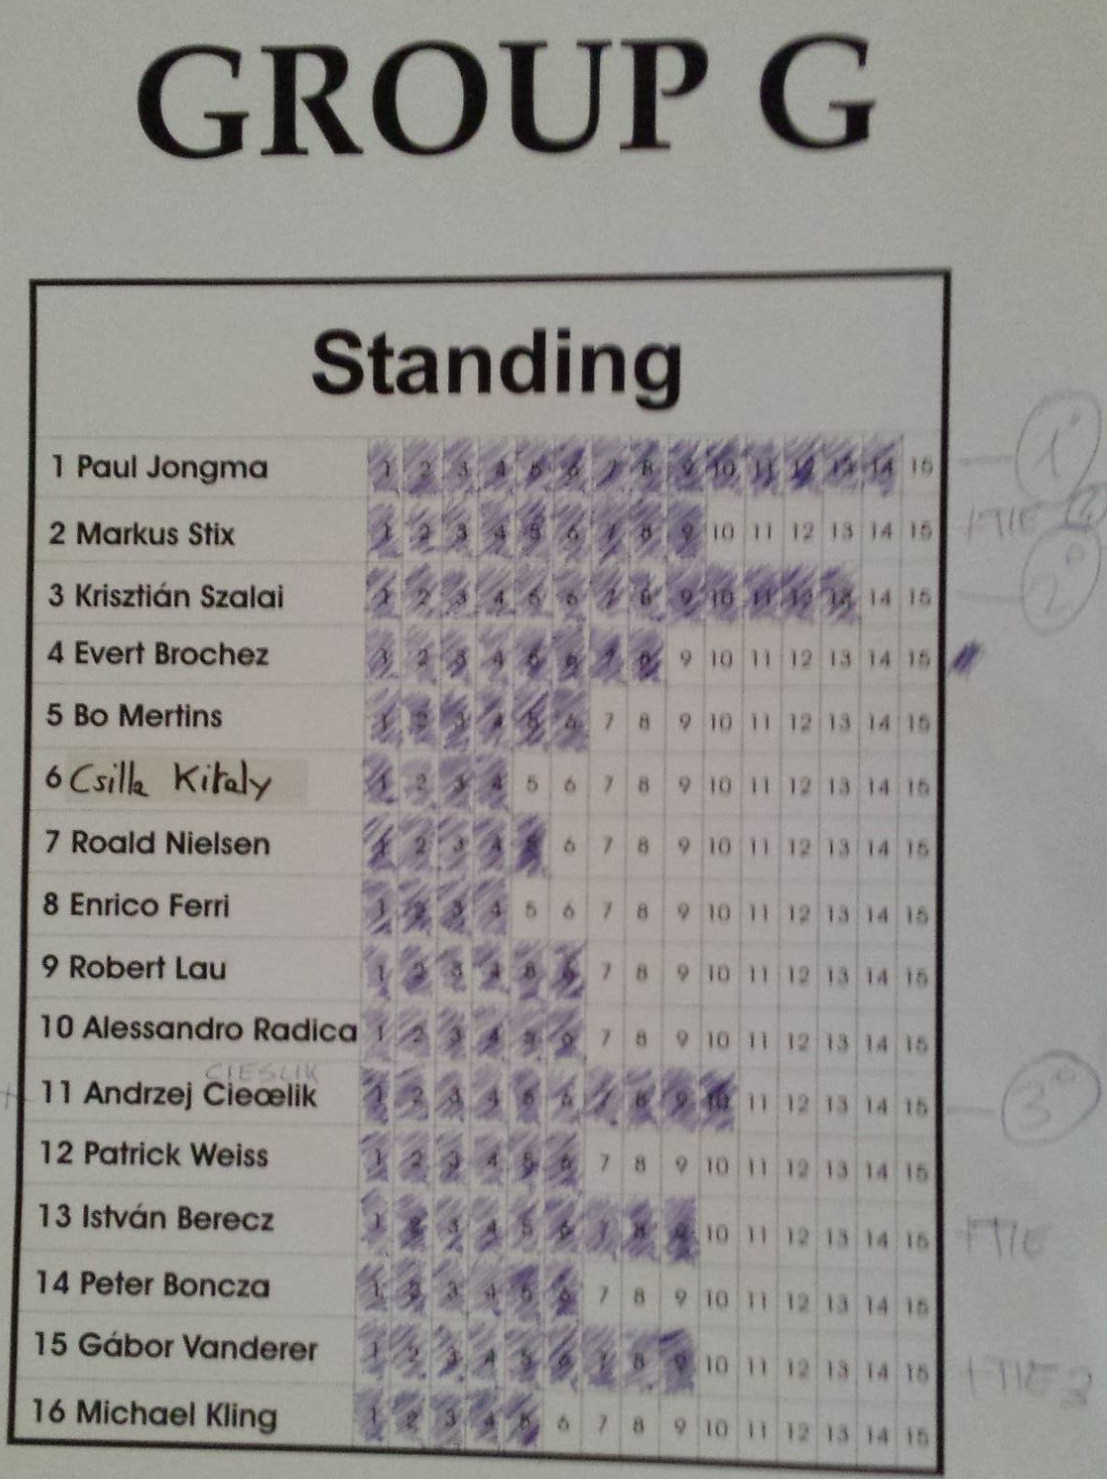 GROUP G
Standing
1 Paul Jongma 1 2 3 4 5 6 7 8 9 10 11 12 13 14 15 1°
2 Markus Stix 1 2 3 4 5 6 7 8 9 10 11 12 13 14 15
3 Krisztián Szalai 1 2 3 4 5 6 7 8 9 10 11 12 13 14 15 2°
4 Evert Brochez 1 2 3 4 5 6 7 8 9 10 11 12 13 14 15
5 Bo Mertins 1 2 3 4 5 6 7 8 9 10 11 12 13 14 15
6 Csilla Kitaly 1 2 3 4 5 6 7 8 9 10 11 12 13 14 15
7 Roald Nielsen 1 2 3 4 5 6 7 8 9 10 11 12 13 14 15
8 Enrico Ferri 1 2 3 4 5 6 7 8 9 10 11 12 13 14 15
9 Robert Lau 1 2 3 4 5 6 7 8 9 10 11 12 13 14 15
10 Alessandro Radica 1 2 3 4 5 6 7 8 9 10 11 12 13 14 15
CIESLIK
11 Andrzej Cieœlik 1 2 3 4 5 6 7 8 9 10 11 12 13 14 15 3°
12 Patrick Weiss 1 2 3 4 5 6 7 8 9 10 11 12 13 14 15
13 István Berecz 1 2 3 4 5 6 7 8 9 10 11 12 13 14 15
14 Peter Boncza 1 2 3 4 5 6 7 8 9 10 11 12 13 14 15
15 Gábor Vanderer 1 2 3 4 5 6 7 8 9 10 11 12 13 14 15
16 Michael Kling 1 2 3 4 5 6 7 8 9 10 11 12 13 14 15